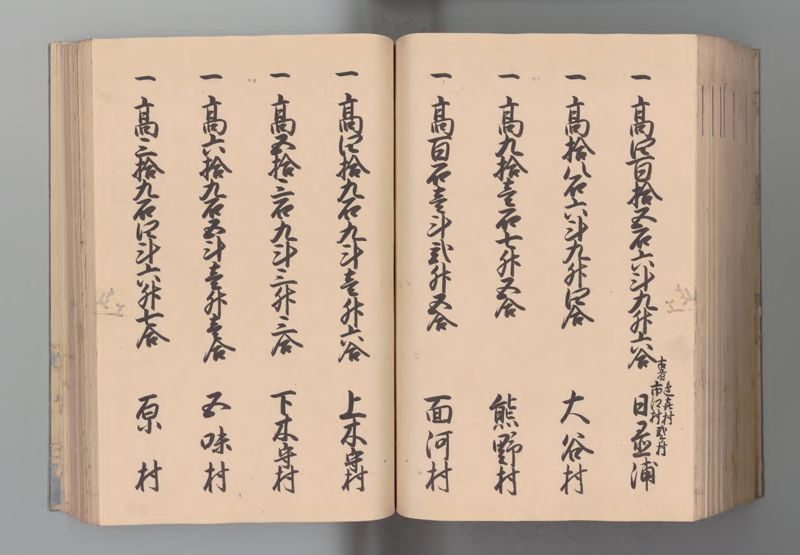 一 高四百拾五石六斗九升六合 日並浦
古者
迄喜村
市口村 弐ケ村
一 高拾八石六斗九升四合 大谷村
一 高九拾壱石七升五合 熊野村
一 高百石壱斗弐升五合 面河村
一 高四拾九石九斗壱升六合 上木守村
一 高五拾三石九斗三升三合 下木守村
一 高六拾九石五斗壱升壱合 五味村
一 高三拾九石四斗六升七合 原村